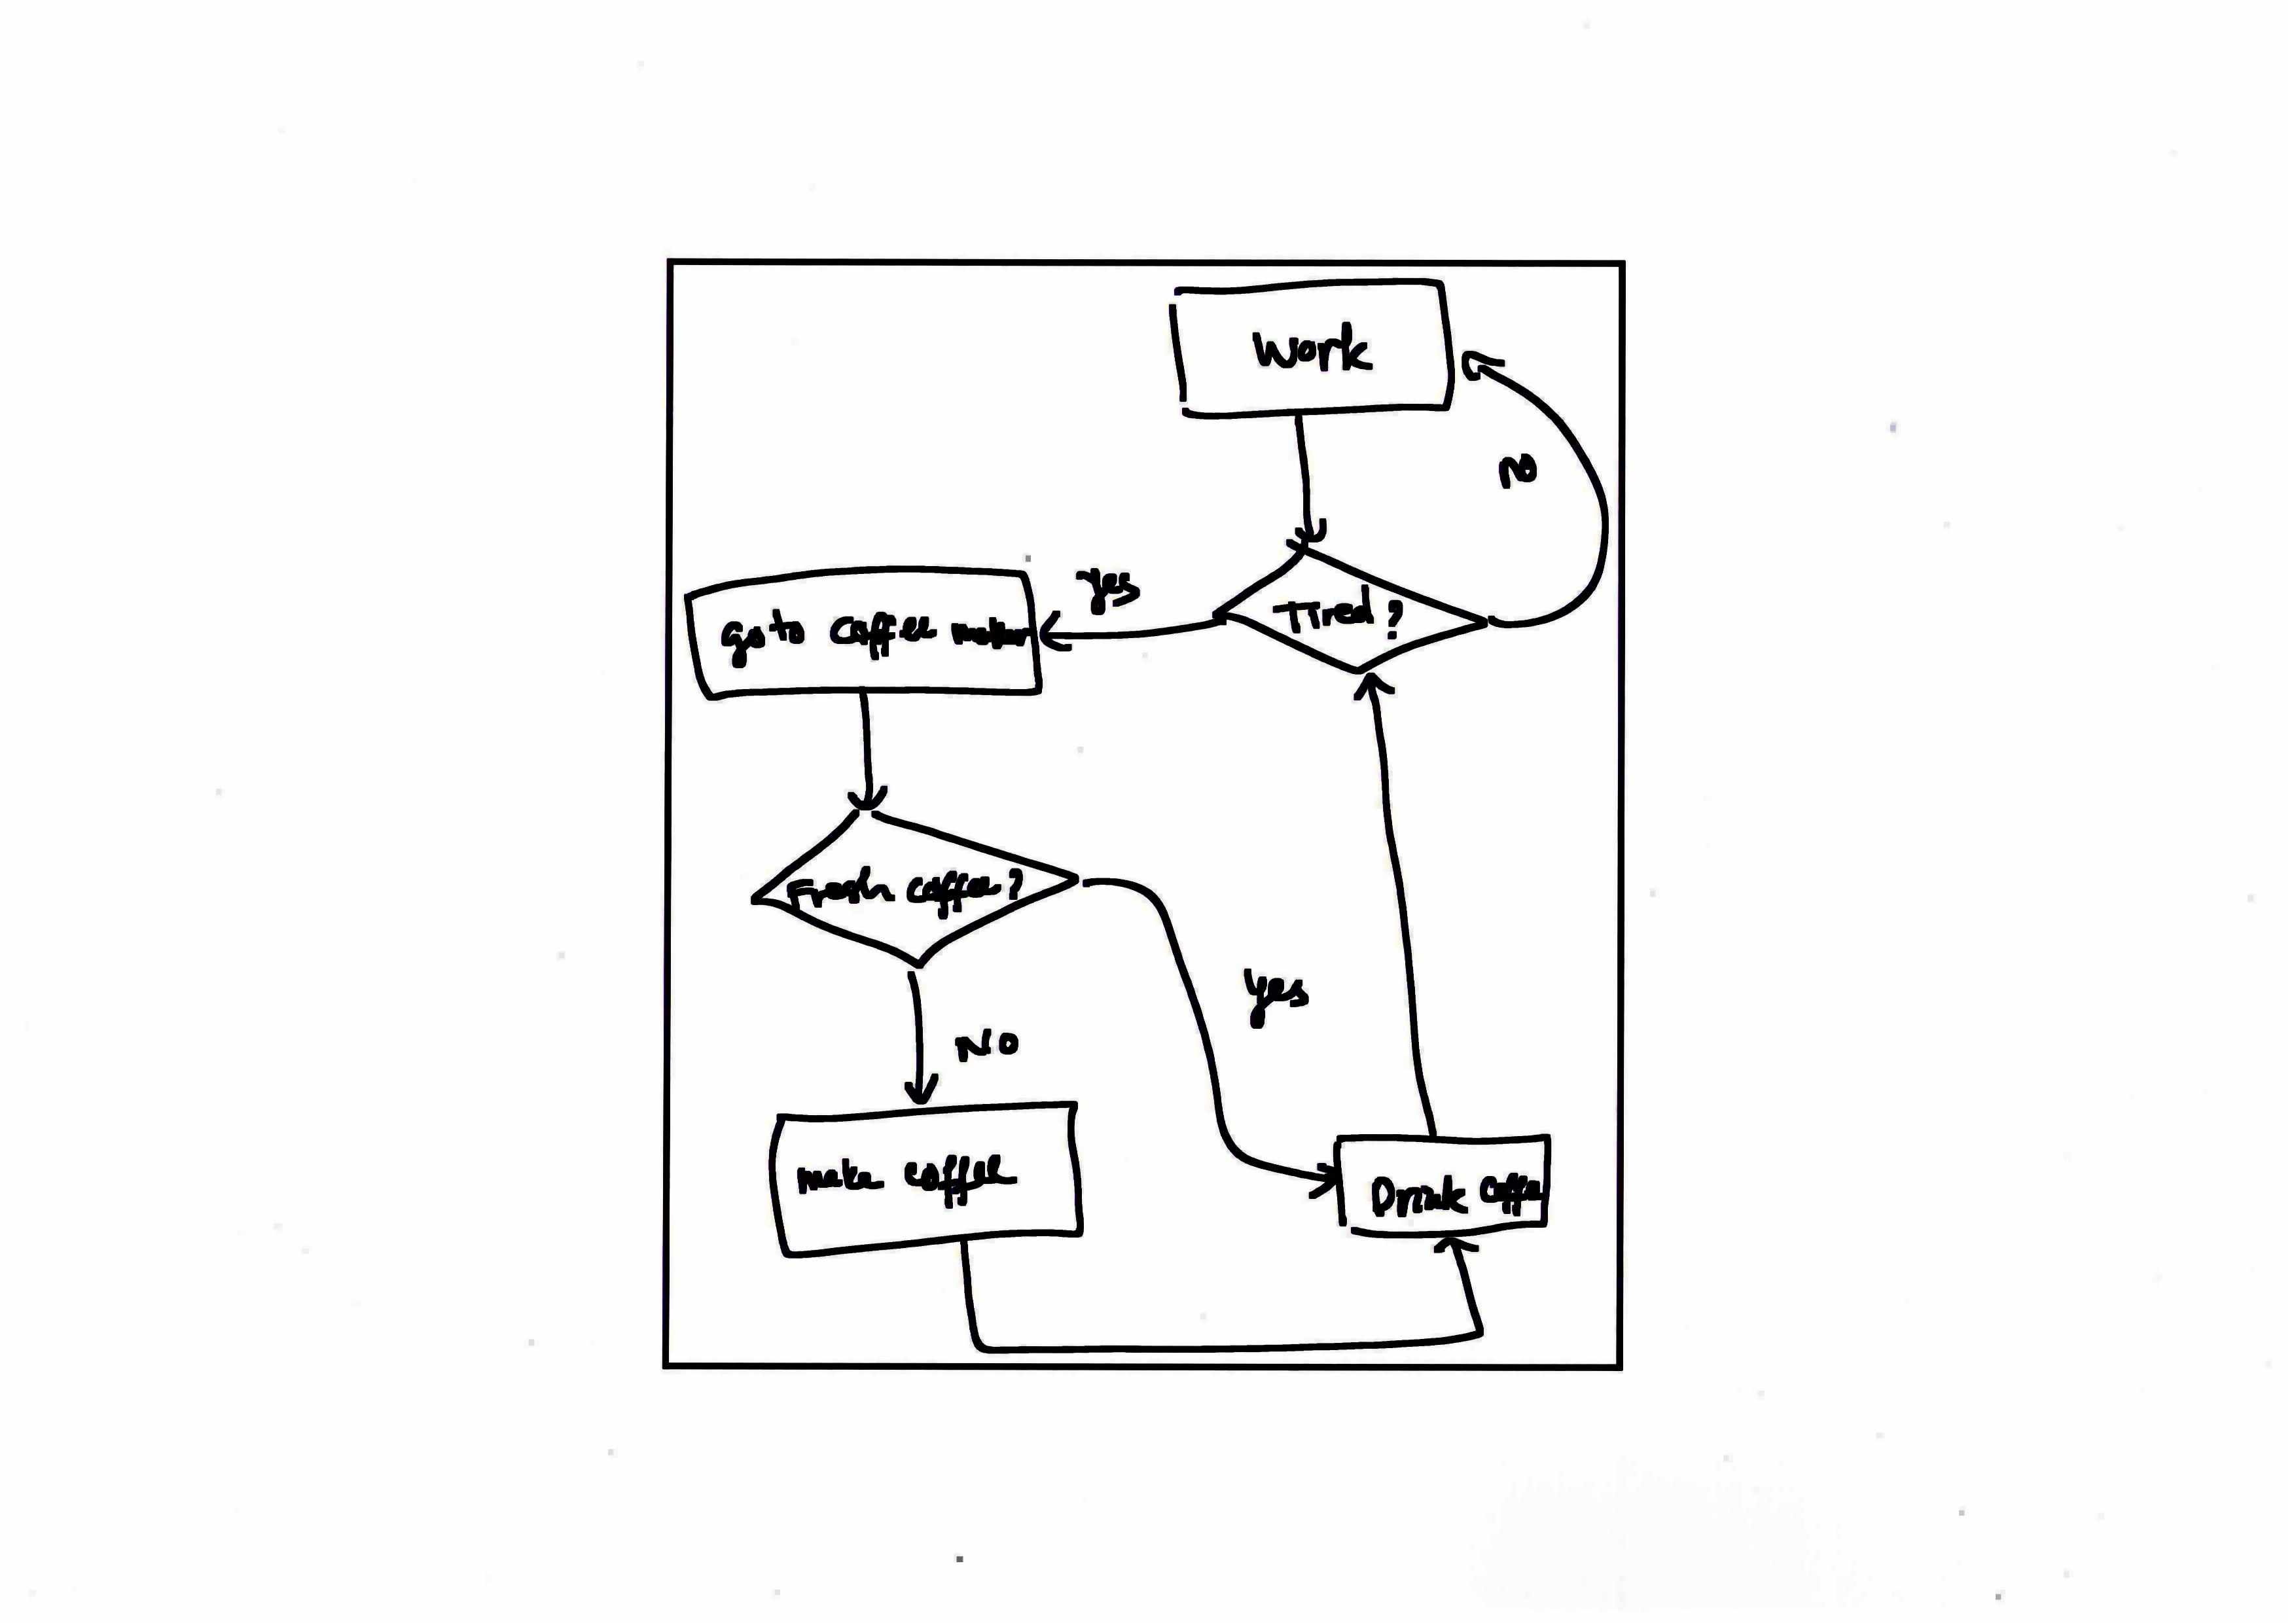 Work
NO
Yes
Tired ?
go to coffee maker
Fresh coffee?
Yes
NO
make coffee
Drink coffee